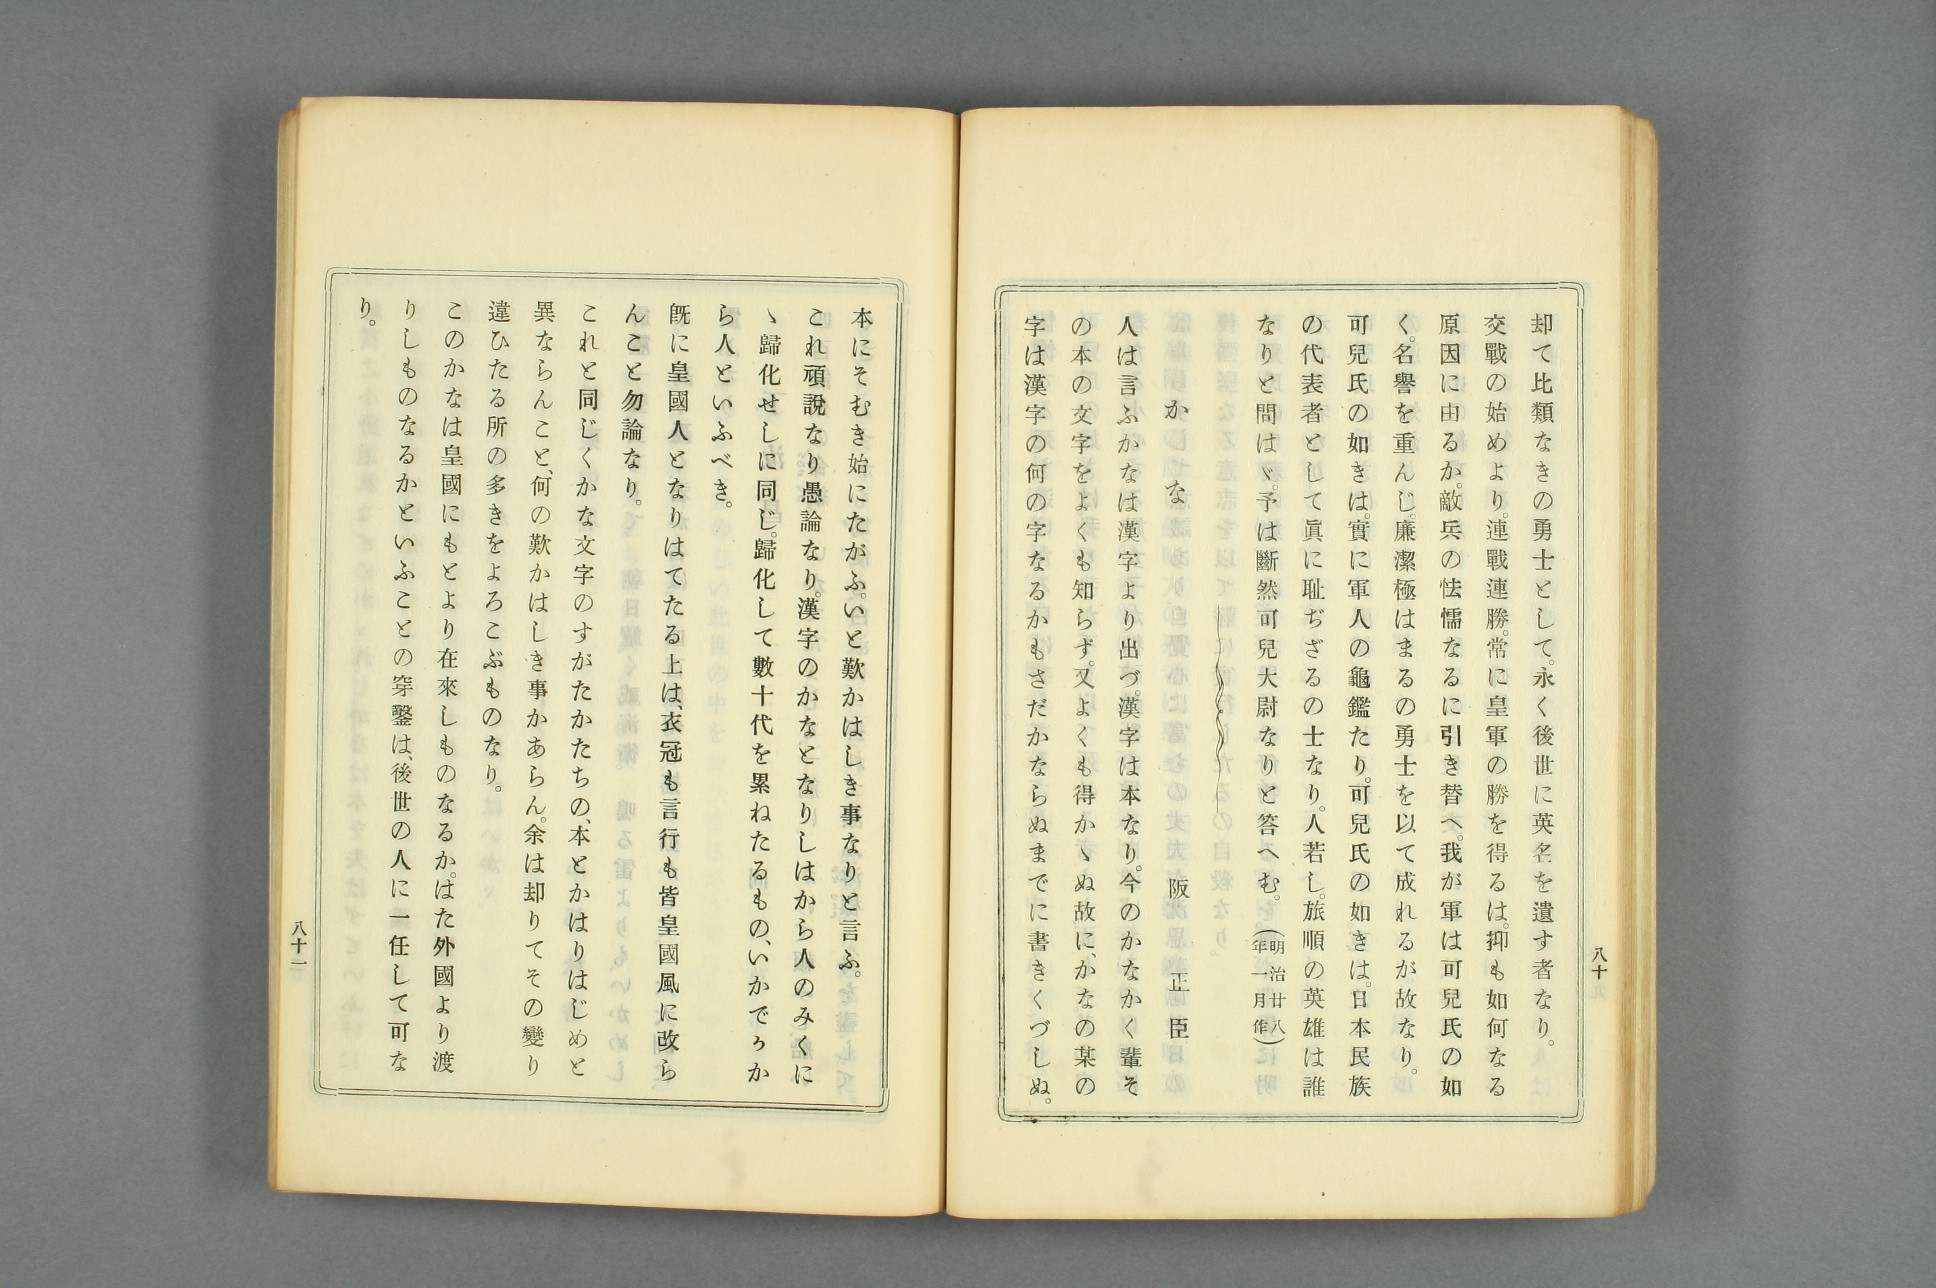 却て比類なきの勇士として。永く後世に英名を遺す者なり。
交戰の始めより。連戰連勝。常に皇軍の勝を得るは。抑も如何なる
原因に由るか。敵兵の怯懦なるに引き替へ。我が軍は可兒氏の如
く。名譽を重んじ。廉潔極はまるの勇士を以て成れるが故なり。
可兒氏の如きは。實に軍人の龜鑑たり。可兒氏の如きは。日本民族
の代表者として眞に耻ぢざるの士なり。人若し。旅順の英雄は誰
なりと問はゞ。予は斷然可兒大尉なりと答へむ。(明治廿八年一月作)
かな 阪正臣
人は言ふかなは漢字より出づ。漢字は本なり。今のかなかく輩そ
の本の文字をよくも知らず。又よくも得かゝぬ故に、かなの某の
字は漢字の何の字なるかもさだかならぬまでに書きくづしぬ。
八十
本にそむき始にたがふ。いと歎かはしき事なりと言ふ。
これ頑說なり愚論なり。漢字のかなとなりしはから人のみくに
ゝ歸化せしに同じ。歸化して數十代を累ねたるもの、いかでヶか
ら人といふべき。
旣に皇國人となりはてたる上は、衣冠も言行も皆皇國風に改ら
んこと勿論なり。
これと同じくかな文字のすがたかたちの、本とかはりはじめと
異ならんこと、何の歎かはしき事かあらん。余は却りてその變り
違ひたる所の多きをよろこぶものなり。
このかなは皇國にもとより在來しものなるか。はた外國より渡
りしものなるかといふことの穿鑿は、後世の人に一任して可な
り。
八十一